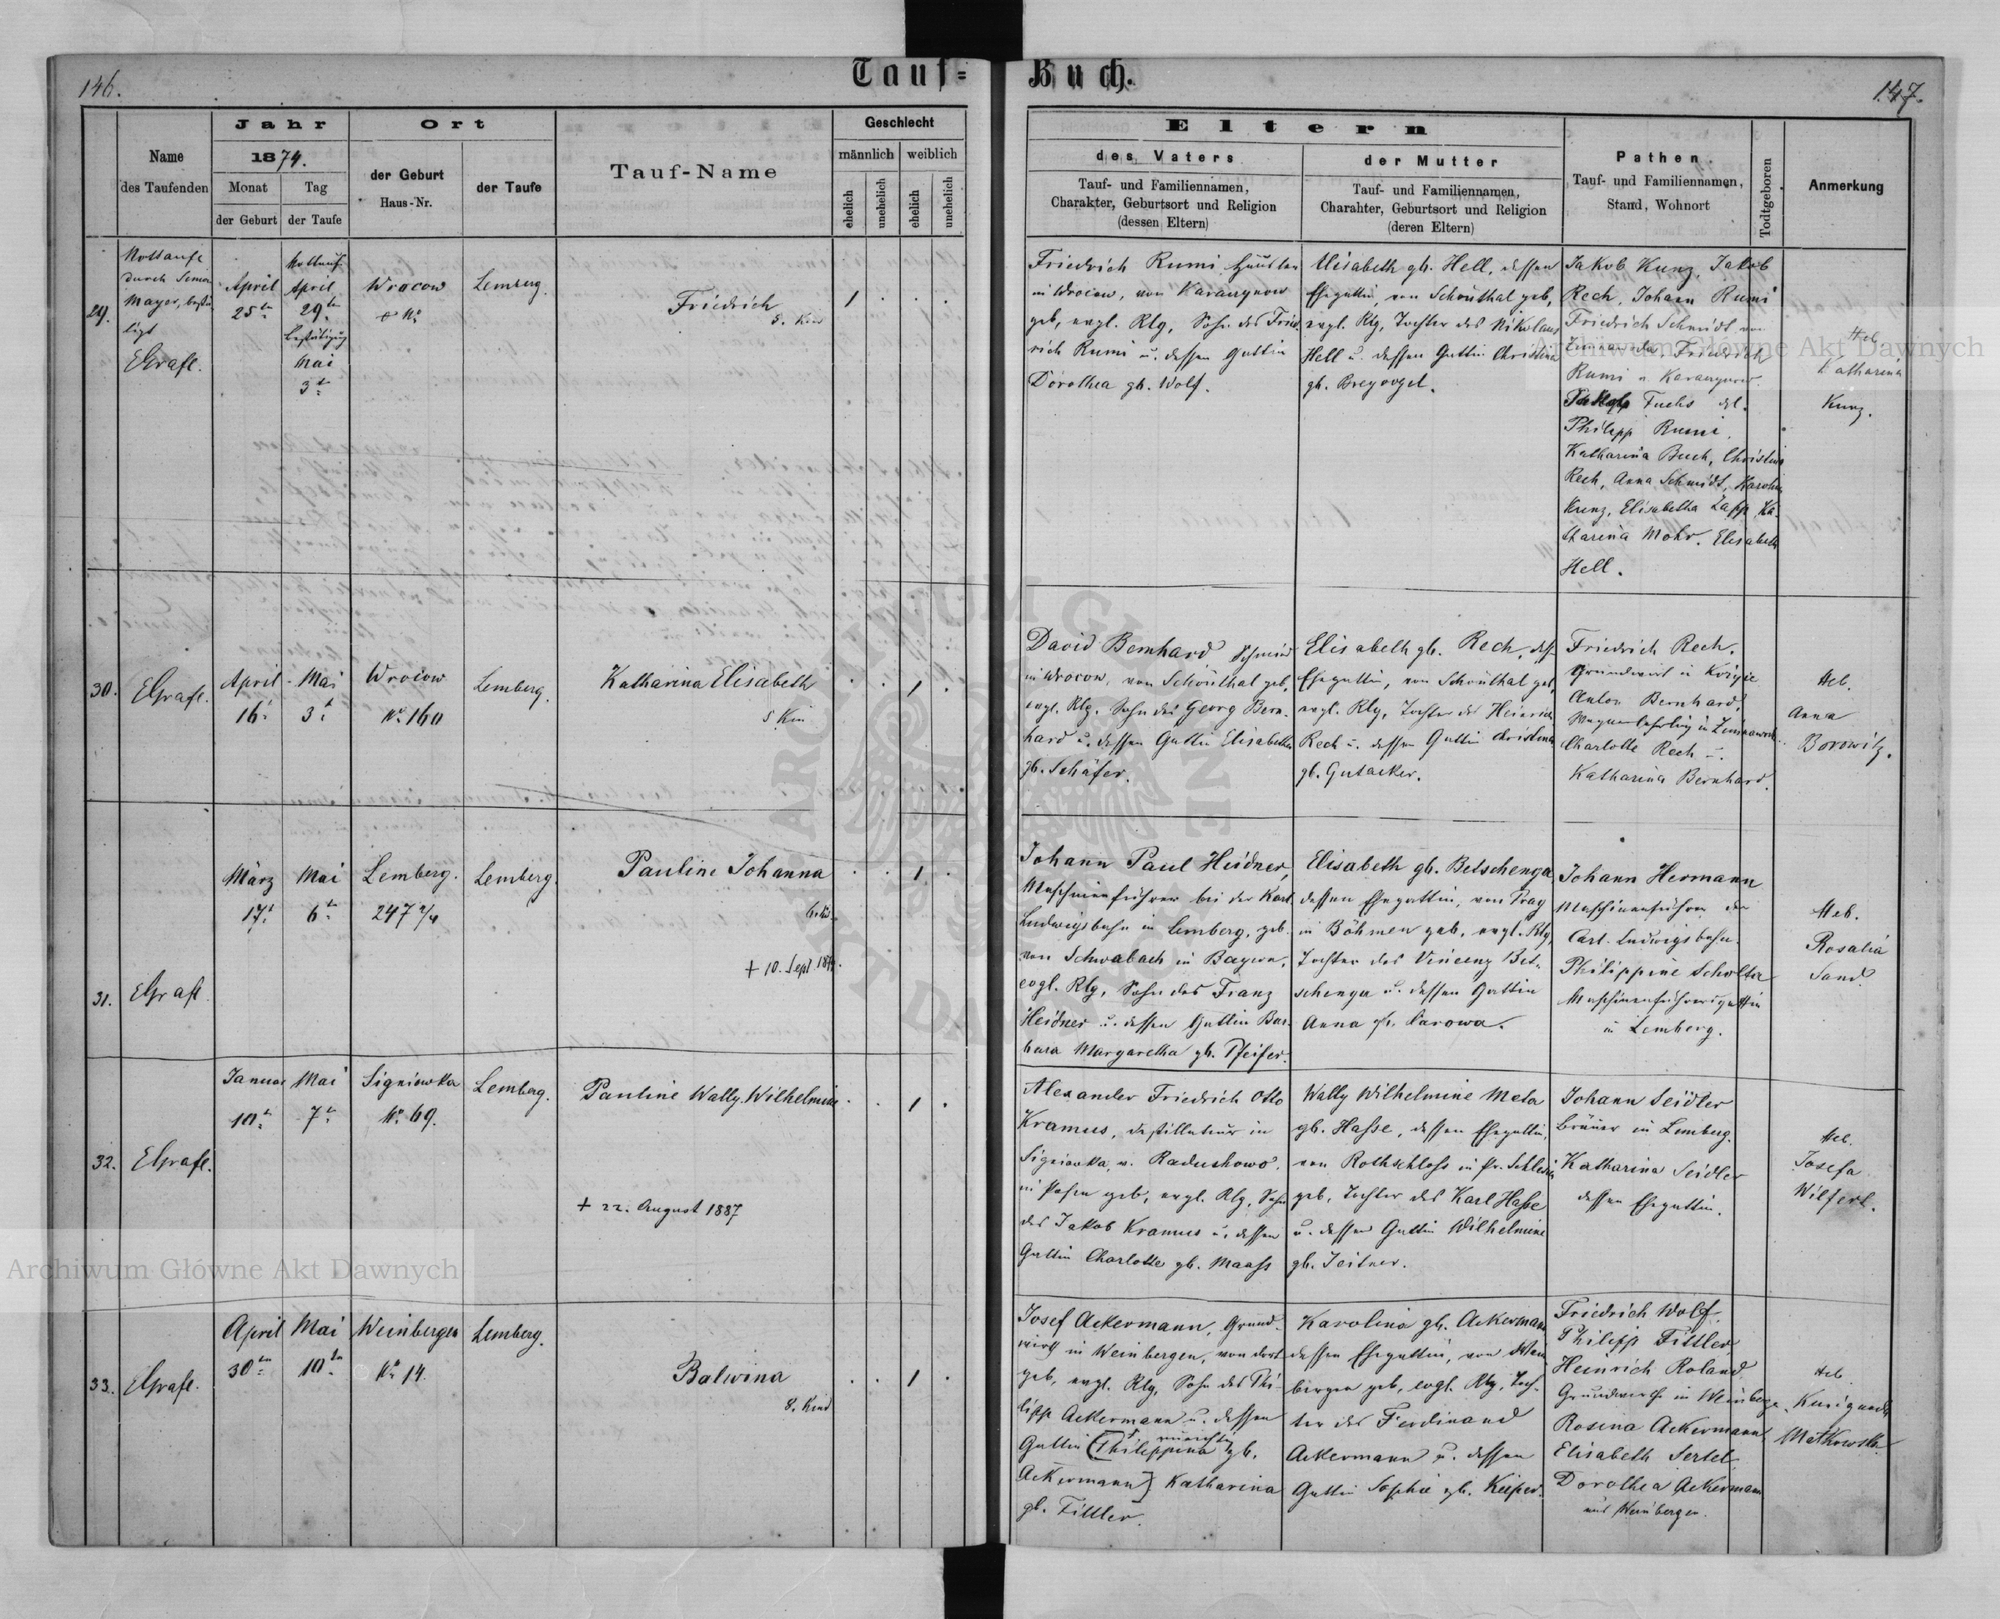 146.
Tauf=
Buch.
147.
Name
des Taufenden
Jahr
1874.
Monat
der Geburt
Tag
der Taufe
Ort
der Geburt
Haus-Nr.
der Taufe
Tauf-Name
Geschlecht
männlich
weiblich
ehelich
unehelich
ehelich
unehelich
Eltern
des Vaters
Tauf- und Familiennamen,
Charakter, Geburtsort und Religion
(dessen Eltern)
der Mutter
Tauf- und Familiennamen,
Charahter, Geburtsort und Religion
(deren Eltern)
Pathen.
Tauf- und Familiennamen,
Stand, Wohnort
Todtgeboren
Anmerkung
29.
Nottaufe
durch Senior
Mayer, bestä-
tigt
EGrafl.
April
25te
April
29te
Bestätigung
Mai
3t
Wrocow
No
Lemberg.
Friedrich
8. Kind
1
Friedrich Rumi
in Wrocow, von
geb, evgl. Rlg, Sohn des Fried-
rich Rumi u. dessen Gattin
Dorothea gb. Wolf.
Elisabeth gb. Hell, dessen
Ehegattin, von Schönthal geb,
evgl. Rlg, Tochter des Nikolaus
Hell u. dessen Gattin Christina
gb. Breyvogel.
Jakob Kunz, Jakob
Rech, Johann Rumi
Friedrich Schmidt von
Friedrich
Rumi
Fuchs
Philipp Rumi.
Katharina Buch, Christina
Rech, Anna Schmidt, Karolina
Kunz, Elisabetha Zapp, Ka-
tharina Mohr. Elisabeth
Hell.
Heb.
Katharina
Kunz.
30.
EGrafl.
April
16t
Mai
3t
Wrocow
No 160
Lemberg.
Katharina Elisabeth
5 Kin
1
David Bernhard
in Wrocow, von Schönthal geb,
evgl. Rlg, Sohn des Georg Bern-
hard u. dessen Gattin Elisabetha
gb. Schäfer.
Elisabeth gb. Rech, dess
Ehegattin, von Schönthal geb,
evgl. Rlg, Tochter des Heinrich
Rech u. dessen Gattin Christina
gb. Gutacker.
Friedrich Rech,
Grundwirt in
Anton Bernhard,
Wagnerlehrling in
Charlotte Rech u.
Katharina Bernhard.
Heb.
Anna
Borowitz.
31.
EGrafl
März
17t
Mai
6t
Lemberg.
247 2/4
Lemberg.
Pauline Johanna
† 10. Sept 1874.
1
Johann Paul Heidner,
Maschinenführer bei der Karl
Ludwigsbahn in Lemberg, geb.
von Schwabach in Bayern,
evgl. Rlg, Sohn des Franz
Heidner u. dessen Gattin Bar-
bara Margaretha gb. Pfeifer.
Elisabeth gb. Betschenga
dessen Ehegattin, von Prag
in Böhmen geb, evgl. Rlg,
Tochter des Vincenz Bet-
schenga u. dessen Gattin
Anna gb. Narowa.
Johann Hermann
Maschinenführer der
Carl Ludwigsbahn.
Philippine Scholter
Maschinenführersgattin
in Lemberg.
Heb.
Rosalia
Sand.
32.
EGrafl.
Januar
10t
Mai
7t
Signiowka
No 69.
Lemberg.
Pauline Wally Wilhelmine
† 22. August 1887
1
Alexander Friedrich Otto
Kramus, Destillateur in
Signiowka, v. Radushowo
in Posen geb, evgl. Rlg, Sohn
des Jakob Kramus u. dessen
Gattin Charlotte gb. Maass
Wally Wilhelmine Meta
gb. Hasse, dessen Ehegattin,
von Rothschloss in Pr. Schlesien
geb, Tochter des Karl Hasse
u. dessen Gattin Wilhelmine
gb. Zeitner.
Johann Seidler
Bräuer in Lemberg.
Katharina Seidler
dessen Ehegattin.
Heb.
Josefa
Wilfert.
33.
EGrafl.
April
30ten
Mai
10ten
Weinbergen
No 14.
Lemberg.
Balwina
8. Kind
1
Josef Ackermann, Grund-
wirth in Weinbergen, von dort
geb, evgl. Rlg, Sohn des Phi-
lipp Ackermann u. dessen
Gattin (Philippina gb.
Ackermann) Katharina
gb. Fittler.
Karolina gb. Ackermann
dessen Ehegattin, von Wein-
bergen geb, evgl. Rlg, Toch-
ter des Ferdinand
Ackermann u. dessen
Gattin Sophie gb. Küpfer.
Friedrich Wolf,
Philipp Fittler
Heinrich Roland
Grundwirth in Weinbergen.
Rosina Ackermann
Elisabeth Sertel
Dorothea Ackermann
aus Weinbergen.
Heb.
Kunigunda
Matkowska
Archiwum Główne Akt Dawnych
Archiwum Główne Akt Dawnych
ARCHIWUM GŁÓWNE AKT DAWNYCH